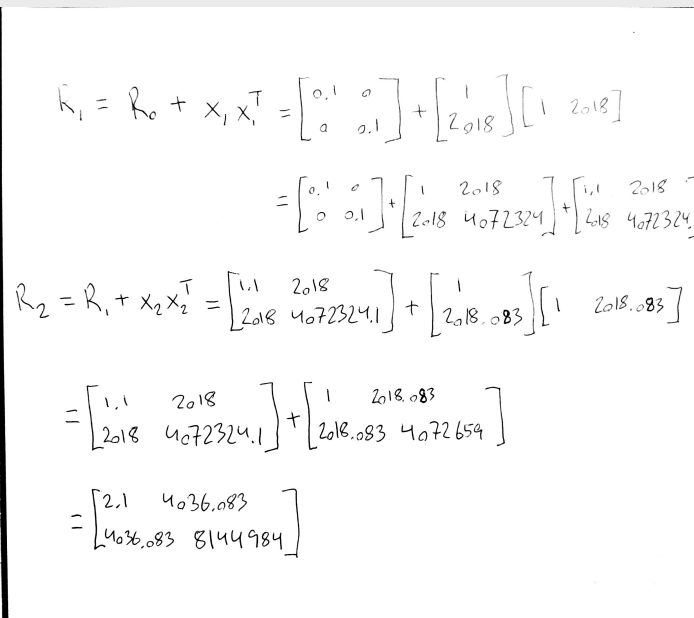 R₁ = R₀ + x₁ x₁ᵀ = [0.1 0; 0 0.1] + [1; 2018] [1 2018]
= [0.1 0; 0 0.1] + [1 2018; 2018 4072324] + [1.1 2018; 2018 4072324.
R₂ = R₁ + x₂ x₂ᵀ = [1.1 2018; 2018 4072324.1] + [1; 2018.083] [1 2018.083]
= [1.1 2018; 2018 4072324.1] + [1 2018.083; 2018.083 4072659]
= [2.1 4036.083; 4036.083 8144984]